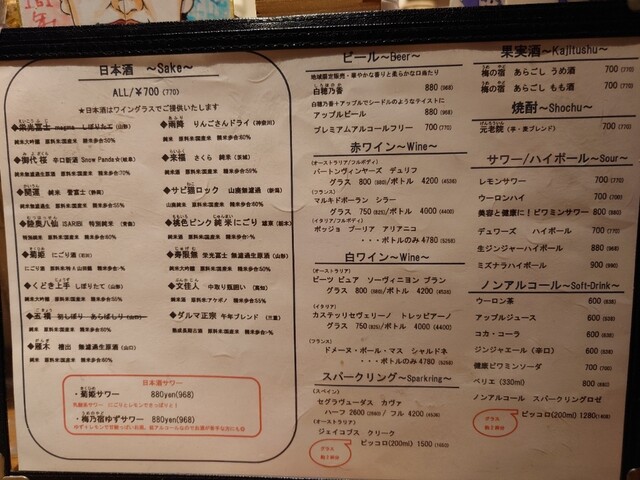 日本酒 ～Sake～
ALL/￥700 (770)
★日本酒はワイングラスでご提供いたします
◆栄光冨士 しぼりたて (山形)
純米大吟醸 原料米:国産米 精米歩合50%
◆御代桜 辛口新酒 Snow Panda☆(岐阜)
純米無濾過生 原料米:国産米 精米歩合70%
◆開運 純米 誉富士 (静岡)
純米無濾過生 原料米:国産米 精米歩合55%
◆陸奥八仙 ISARIBI 特別純米 (青森)
特別純米 原料米:国産米 精米歩合60%
◆菊姫 にごり酒 (石川)
◆くどき上手 しぼりたて (山形)
純米大吟醸 原料米:国産米 精米歩合
◆五橋
純米 原料米:国産米 精米歩合60%
◆雁木 槽出 無濾過生原酒 (山口)
純米 原料米:国産米 精米歩合60%
◆雨降 りんごさんドライ (神奈川)
純米 原料米:国産米 精米歩合60%
◆来福 さくら 純米 (茨城)
純米 原料米:国産米 精米歩合59%
◆サビ猫ロック 山廃無濾過 (新潟)
山廃純米 原料米:国産米 精米歩合60%
◆桃色ピンク 純米にごり
純米 原料米:国産米 精米歩合-%
◆寿限無 栄光冨士 無濾過生原酒 (山形)
純米大吟醸 原料米:国産米
◆文佳人 中取り瓶囲い (高知)
純米 原料米:アケボノ 精米歩合55%
◆ダルマ正宗 午年ブレンド
熟成長期古酒 原料米:国産米 精米歩合-%
日本酒サワー
・菊姫サワー 880yen(968)
乳酸系サワー にごりとレモンでさっぱりと！
・梅乃宿ゆずサワー 880yen(968)
ビール～Beer～
地域限定販売・華やかな香りと柔らかな口あたり
白穂乃香 880 (968)
白穂乃香＋アップルでシードルのようなテイストに
アップルビール 880 (968)
プレミアムアルコールフリー 700 (770)
赤ワイン～Wine～
(オーストラリア/フルボディ)
バートンヴィンヤーズ デュリフ
グラス 800 (880)/ボトル 4200 (4620)
(フランス)
マルキドボーラン シラー
グラス 750 (825)/ボトル 4000 (4400)
(イタリア/フルボディ)
ポッジョ ブーリア アリアニコ
・・・ボトルのみ4780 (5258)
白ワイン～Wine～
(オーストラリア)
ピーツ ピュア ソーヴィニヨン ブラン
グラス 800 (880)/ボトル 4200 (4620)
(イタリア)
カステッリセヴェルーノ トレッビアーノ
グラス 750 (825)/ボトル 4000 (4400)
(フランス)
ドメーヌ・ポール・マス シャルドネ
・・・ボトルのみ4780 (5258)
スパークリング～Sparkring～
(スペイン)
セグラヴューダス カヴァ
ハーフ 2600 (2860) / フル 4200 (4620)
(オーストラリア)
ジェイコブス クリーク
ピッコロ(200ml) 1500 (1650)
グラス
約2杯分
果実酒～Kajitushu～
梅の宿 あらごし うめ酒 700 (770)
梅の宿 あらごし もも酒 700 (770)
焼酎～Shochu～
元老院 (芋・麦ブレンド) 700 (770)
サワー/ハイボール～Sour～
レモンサワー 700 (770)
ウーロンハイ 700 (770)
美容と健康に！ビタミンサワー 800 (880)
デュワーズ ハイボール 700 (770)
生ジンジャーハイボール 880 (968)
ミズナラハイボール 900 (990)
ノンアルコール～Soft-Drink～
ウーロン茶 600 (638)
アップルジュース 600 (638)
コカ・コーラ 600 (638)
ジンジャエール (辛口) 600 (638)
健康ビタミンソーダ 700 (770)
ペリエ (330ml) 800 (880)
ノンアルコール スパークリングロゼ
ピッコロ(200ml) 1280(1408)
グラス
約2杯分